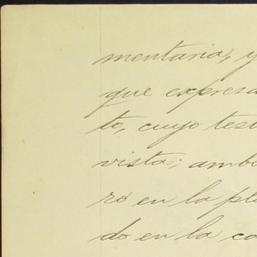 mentaria, y
que expresa
to, cuyo test
vista; amb
ro en la pl
do en la ca